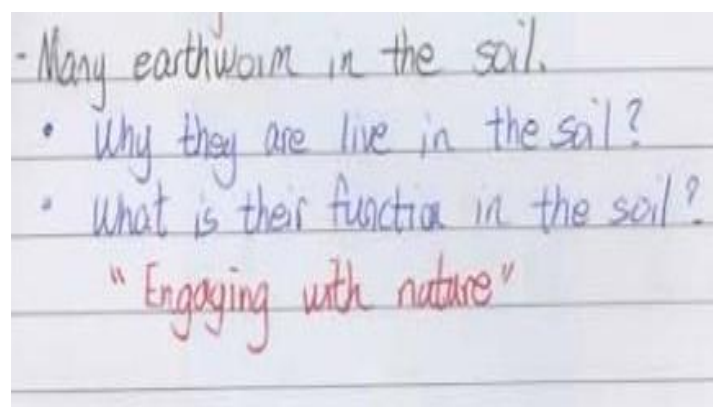 - Many earthworm in the soil.
• Why they are live in the soil?
• What is their function in the soil?
"Engaging with nature"